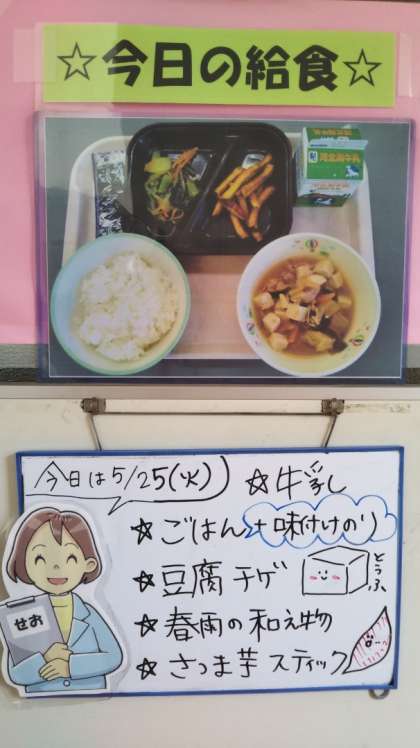 ☆今日の給食☆
今日は5/25(火)
☆牛乳
☆ごはん+味付けのり
☆豆腐チゲ
とうふ
☆春雨の和え物
☆さつま芋スティック
せお